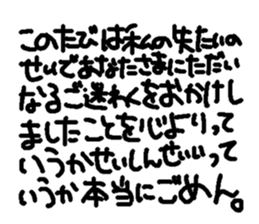 このたびは私の失たいの
せいであなたさまにただい
なるご迷わくをおかけし
ましたことを心よりって
いうかせいしんせいいって
いうか本当にごめん。